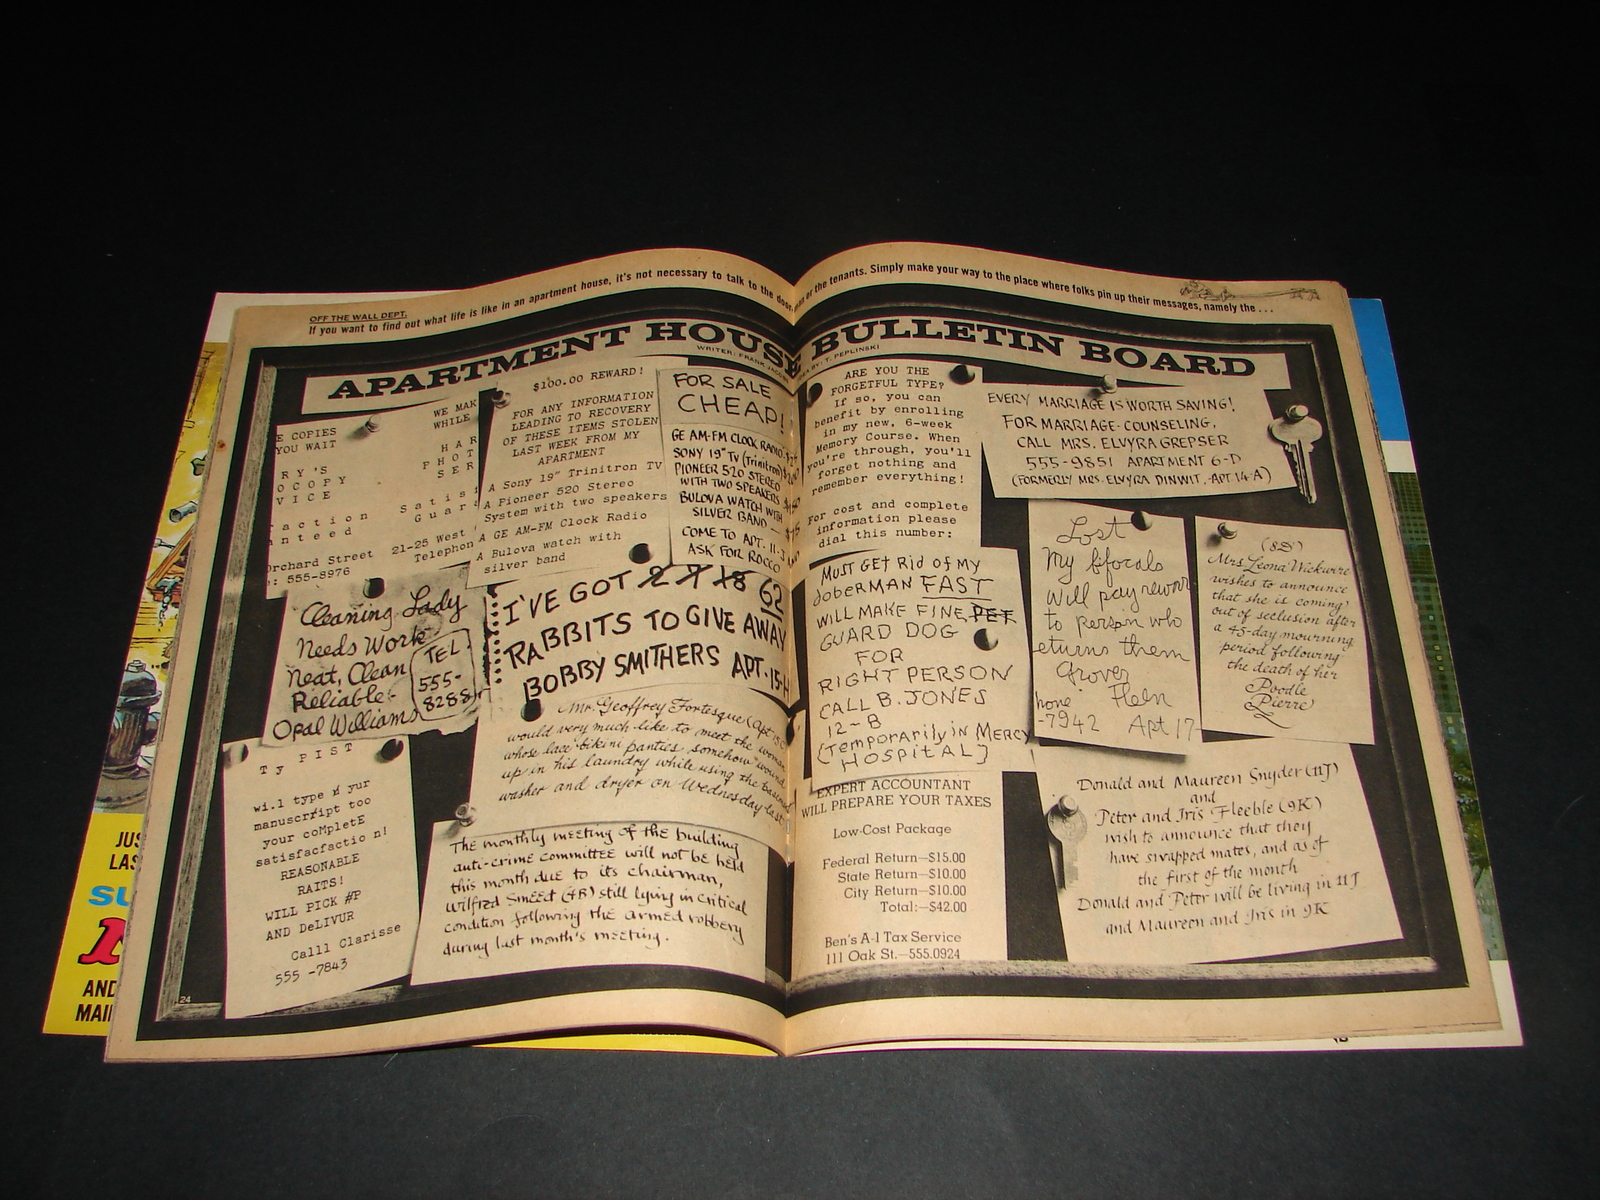 OFF THE WALL DEPT.
If you want to find out what life is like in an apartment house, it's not necessary to talk to the or the tenants. Simply make your way to the place where folks pin up their messages, namely the . . .
APARTMENT HOUSE BULLETIN BOARD
WRITER: FRANK
BY: T. PEPLINSKI
WE MAK
E COPIES WHILE
YOU WAIT
HAR
RY'S PHOT
OCOPY SER
VICE
Satis
action Guar
nteed
Orchard Street 21-25 West
: 555-8976 Telephon
$100.00 REWARD!
FOR ANY INFORMATION
LEADING TO RECOVERY
OF THESE ITEMS STOLEN
LAST WEEK FROM MY
APARTMENT
A Sony 19" Trinitron TV
A Pioneer 520 Stereo
System with two speakers
A GE AM-FM Clock Radio
A Bulova watch with
silver band
FOR SALE
CHEAP!
GE AM-FM CLOCK RADIO
SONY 19" TV (Trinitron)
PIONEER 520 STEREO
WITH TWO SPEAKERS
BULOVA WATCH WITH
SILVER BAND
COME TO APT. 11-J
ASK FOR ROCCO
ARE YOU THE
FORGETFUL TYPE?
If so, you can
benefit by enrolling
in my new, 6-week
Memory Course. When
you're through, you'll
forget nothing and
remember everything!
For cost and complete
information please
dial this number:
EVERY MARRIAGE IS WORTH SAVING!
FOR MARRIAGE COUNSELING,
CALL MRS. ELVYRA GREPSER
555-9851 APARTMENT 6-D
(FORMERLY MRS. ELVYRA DINWIT, APT 14-A)
Cleaning Lady
Needs Work
Neat, Clean
Reliable
Opal Williams
TEL.
555-
8288
I'VE GOT 2 7 18 62
RABBITS TO GIVE AWAY
BOBBY SMITHERS APT. 15-H
MUST GET Rid of My
doberMAN FAST
WILL MAKE FINE PET
GUARD DOG
FOR
RIGHT PERSON
CALL B. JONES
12-B
(Temporarily in MERCY
HOSPITAL)
Lost
My bifocals
Will pay rewar
to person who
eturns them
Grover
hone Fleen
-7942 Apt 17
(8D)
Mrs. Leona Wickwire
wishes to announce
that she is coming
out of seclusion after
a 45-day mourning
period following
the death of her
Poodle
Pierre
Mr. Geoffrey Fortesque (Apt
would very much like to meet the woman
whose lace bikini panties somehow wound
up in his laundry while using the basement
washer and dryer on Wednesday last
Ty PIST
wi.l type yur
manuscript too
your coMpletE
satisfactio n!
REASONABLE
RAITS!
WILL PICK #P
AND DeLIVUR
Calll Clarisse
555 -7843
The monthly meeting of the building
anti-crime committee will not be held
this month due to its chairman,
Wilfred Smeet (4B) still lying in critical
condition following the armed robbery
during last month's meeting.
EXPERT ACCOUNTANT
WILL PREPARE YOUR TAXES
Low-Cost Package
Federal Return—$15.00
State Return—$10.00
City Return—$10.00
Total:—$42.00
Ben's A-1 Tax Service
111 Oak St.—555.0924
Donald and Maureen Snyder (11J)
and
Peter and Iris Fleeble (9K)
wish to announce that they
have swapped mates, and as of
the first of the month
Donald and Peter will be living in 11J
and Maureen and Iris in 9K
24
JUS
LAS
SU
M
AND
MAI